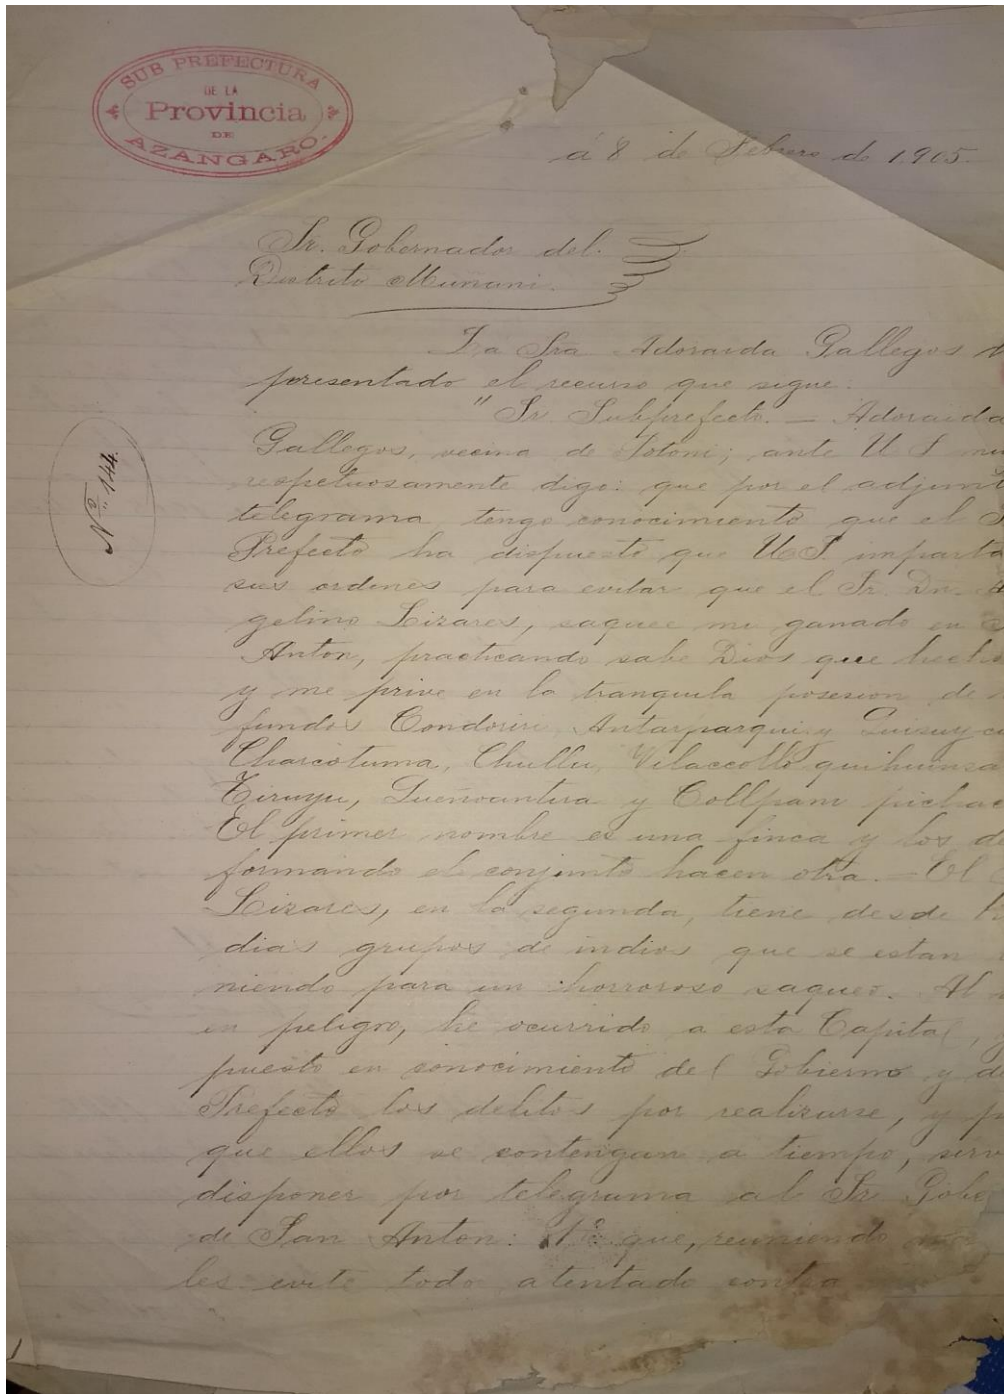 SUB PREFECTURA
DE LA
Provincia
DE
AZANGARO.
á 8 de Febrero de 1.905.
Sr. Gobernador del.
Distrito Muñani.
Nº 144.
La Sra Adoraida Gallegos
presentado el recurso que sigue:
"Sr Subprefecto. — Adoraida
Gallegos, vecina de Potoni; ante U S
respetuosamente digo: que por el adjunt
telegrama, tengo conocimiento que el S
Prefecto ha dispuesto que U.S. imparta
sus ordenes para evitar que el Sr. Dn. A
gelino Lizares, saquee mi ganado en S
Anton, practicando sabe Dios que hecho
y me prive en la tranquila posesion de
fundos Condoriri, Antarparqui y
Charcotuma, Chullu, Vilaccollo quihuinsa
Tiruyu, y Collpani pichac
El primer nombre es una finca y los de
formando el conjunto hacen otra. — El
Lizares, en la segunda, tiene desde tr
dias grupos de indios que se estan
niendo para un horroroso saqueo. Al
en peligro, he ocurrido a esta Capital, y
puesto en conocimiento del Gobierno y de
Prefecto los delitos por realizarse, y p
que ellos se contengan a tiempo, sirv
disponer por telegrama al Sr Gobe
de San Anton: 1º que, reuniendo
les evite todo atentado contra